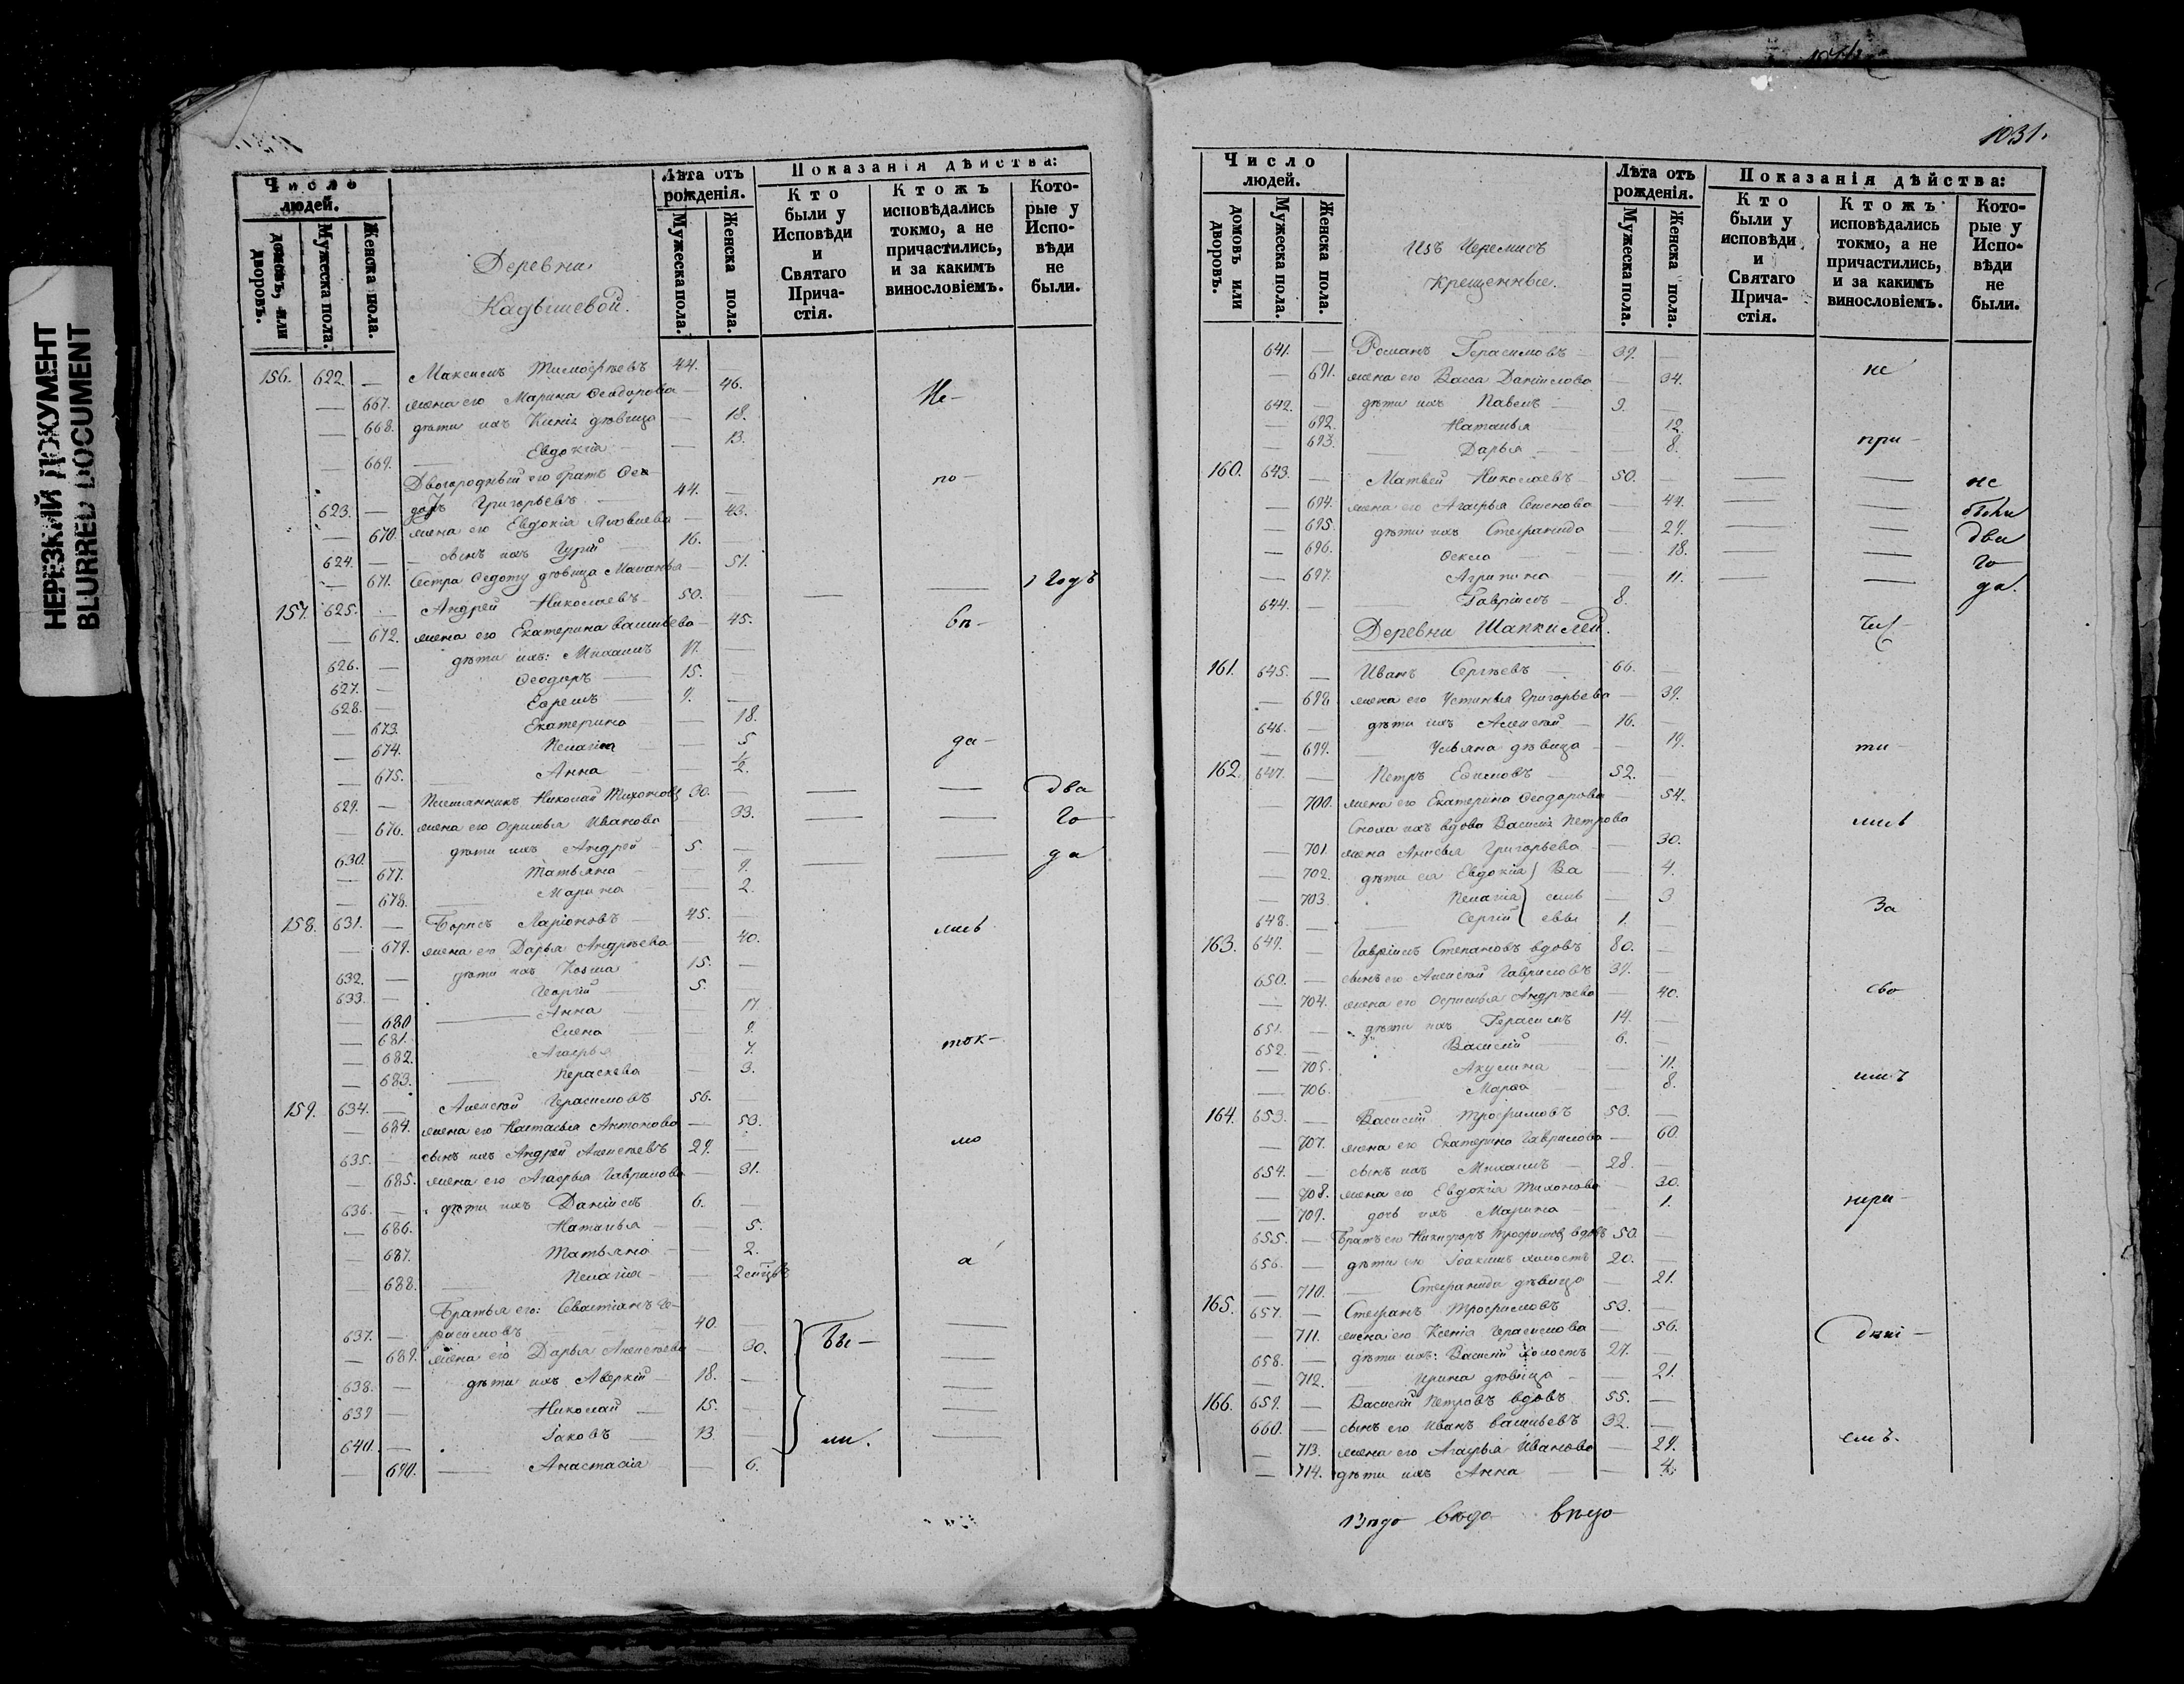 НЕРЕЗКИЙ ДОКУМЕНТ
BLURRED DOCUMENT
Число людей.
домовъ, или дворовъ.
Мужеска пола.
Женска пола.
Деревни
Кадышевой.
Лѣта отъ рожденія.
Мужеска пола.
Женска пола.
Показанія дѣйства:
Кто были у Исповѣди и Святаго Прича-стія.
Ктожъ исповѣдались токмо, а не причастились, и за какимъ винословіемъ.
Кото-рые у Испо-вѣди не были.
156. 622. — Максимъ Тимофѣевъ 44. —
— 667. жена его Марина Ѳеодорова — 46. Не-
— 668. дѣти ихъ Ксенія дѣвица — 18.
— 669. Евдокія — 13.
Двоюродный его братъ Ѳео-
623. — доръ Григорьевъ 44. — по-
— 670. жена его Евдокія — 43.
624. — сынъ ихъ Гурій 16. —
— 671. Сестра дѣвица — 51.
157. 625. — Андрей Николаевъ 50. — — — 1 годъ
— 672. жена его Екатерина Васильева — 45. бл-
626. — дѣти ихъ: Михаилъ 17. —
627. — Ѳеодоръ 15. —
628. — Ефремъ 9. —
— 673. Екатерина — 18.
— 674. Пелагія — 5 да-
— 675. Анна — 1/2.
629. — Племянникъ Николай Тихоновъ 30. — — — два
— 676. жена его Офимья Иванова — 33. — — го
630. — дѣти ихъ Андрей 5. — — — да
— 677. Татьяна — 9.
— 678. Марина — 2.
158. 631. — Борисъ Ларіоновъ 45. —
— 679. жена его Дарья Андрѣева — 40. лись
632. — дѣти ихъ Козма 15. —
633. — Георгій 5. —
— 680 Анна — 17
— 681. Елена — 9.
— 682. Агафья — 7. ток-
— 683. Параскева — 3.
159. 634. — Алексѣй Герасимовъ 56. —
— 684. жена его Настасья Антонова — 53.
635. — сынъ ихъ Андрей Алексѣевъ 29. — мо
— 685. жена его Агафья Гаврилова — 31.
636. — дѣти ихъ Даніилъ 6. —
— 686. Наталья — 5.
— 687. Татьяна — 2.
— 688. Пелагія — а
Братья его: Севастіянъ Ге-
637. — расимовъ 40. —
— 689. жена его Дарья Алексѣева — 30. Бы- —
638. — дѣти ихъ Аверкій 18. — —
639 — Николай 15. — —
640. — Іаковъ 13. — ли. —
— 690. Анастасія — 6.
1031.
Число людей.
домовъ или дворовъ.
Мужеска пола.
Женска пола.
Изъ Черемисъ
крещенные.
Лѣта отъ рожденія.
Мужеска пола.
Женска пола.
Показанія дѣйства:
Кто были у исповѣди и Святаго Прича-стія.
Ктожъ исповѣдались токмо, а не причастились, и за какимъ винословіемъ.
Кото-рые у Испо-вѣди не были.
641. — Романъ Герасимовъ 39. — не
— 691. жена его Васса Даніилова — 34.
642. — дѣти ихъ Павелъ 9. —
— 692. Наталья — 12.
— 693. Дарья — 8. при-
160. 643. — Матвей Николаевъ 50. — — — не
— 694. жена его Агафья Семенова — 44. — — были
— 695. дѣти ихъ Стефанида — 29. — — два
— 696. Ѳекла — 18. — — го
— 697. Агрипина — 11. — — да.
644. — Гавріилъ 8.
Деревни Шапкилей.
161. 645. — Иванъ Сергѣевъ 66. —
— 698 жена его Устинья Григорьева — 39.
646. — дѣти ихъ Алексѣй 16. —
— 699. Ульяна дѣвица — 19. ти-
162. 647. — Петръ Ефимовъ 52. —
— 700. жена его Екатерина Ѳеодорова — 54.
Сноха ихъ вдова Василія Петрова лись
— 701. жена Анисья Григорьева — 30.
— 702. дѣти ея Евдокія Ва — 4.
— 703. Пелагія силь — 3 За
648. — Сергій евы 1. —
163. 649. — Гавріилъ Степановъ вдовъ 80. —
650. — сынъ его Алексѣй Гавриловъ 39. —
— 704. жена его Офимья Андрѣева — 40. сво
651. — дѣти ихъ Герасимъ 14. —
652. — Василій 6. —
— 705. Акулина — 11.
— 706. Марѳа — 8. имъ
164. 653. — Василій Трофимовъ 53. —
— 707. жена его Екатерина Гаврилова — 60.
654. — сынъ ихъ Михаилъ 28. —
— 708. жена его Евдокія Тихонова — 30.
— 709. дочь ихъ Марина — 1. нера-
655. — Братъ его Никифоръ Трофимовъ вдовъ 50. —
656. — дѣти его Іоакимъ холостъ 20. —
— 710. Стефанида дѣвица — 21.
165. 657. — Стефанъ Трофимовъ 53. —
— 711. жена его Ксенія Герасимова — 56. дѣні-
658. — дѣти ихъ: Василій холостъ 27. —
— 712. Ирина дѣвица — 21.
166. 659. — Василій Петровъ вдовъ 55. —
660. — сынъ его Иванъ Васильевъ 32. —
— 713. жена его Агафья Иванова — 29. емъ.
— 714. дѣти ихъ Анна — 4.